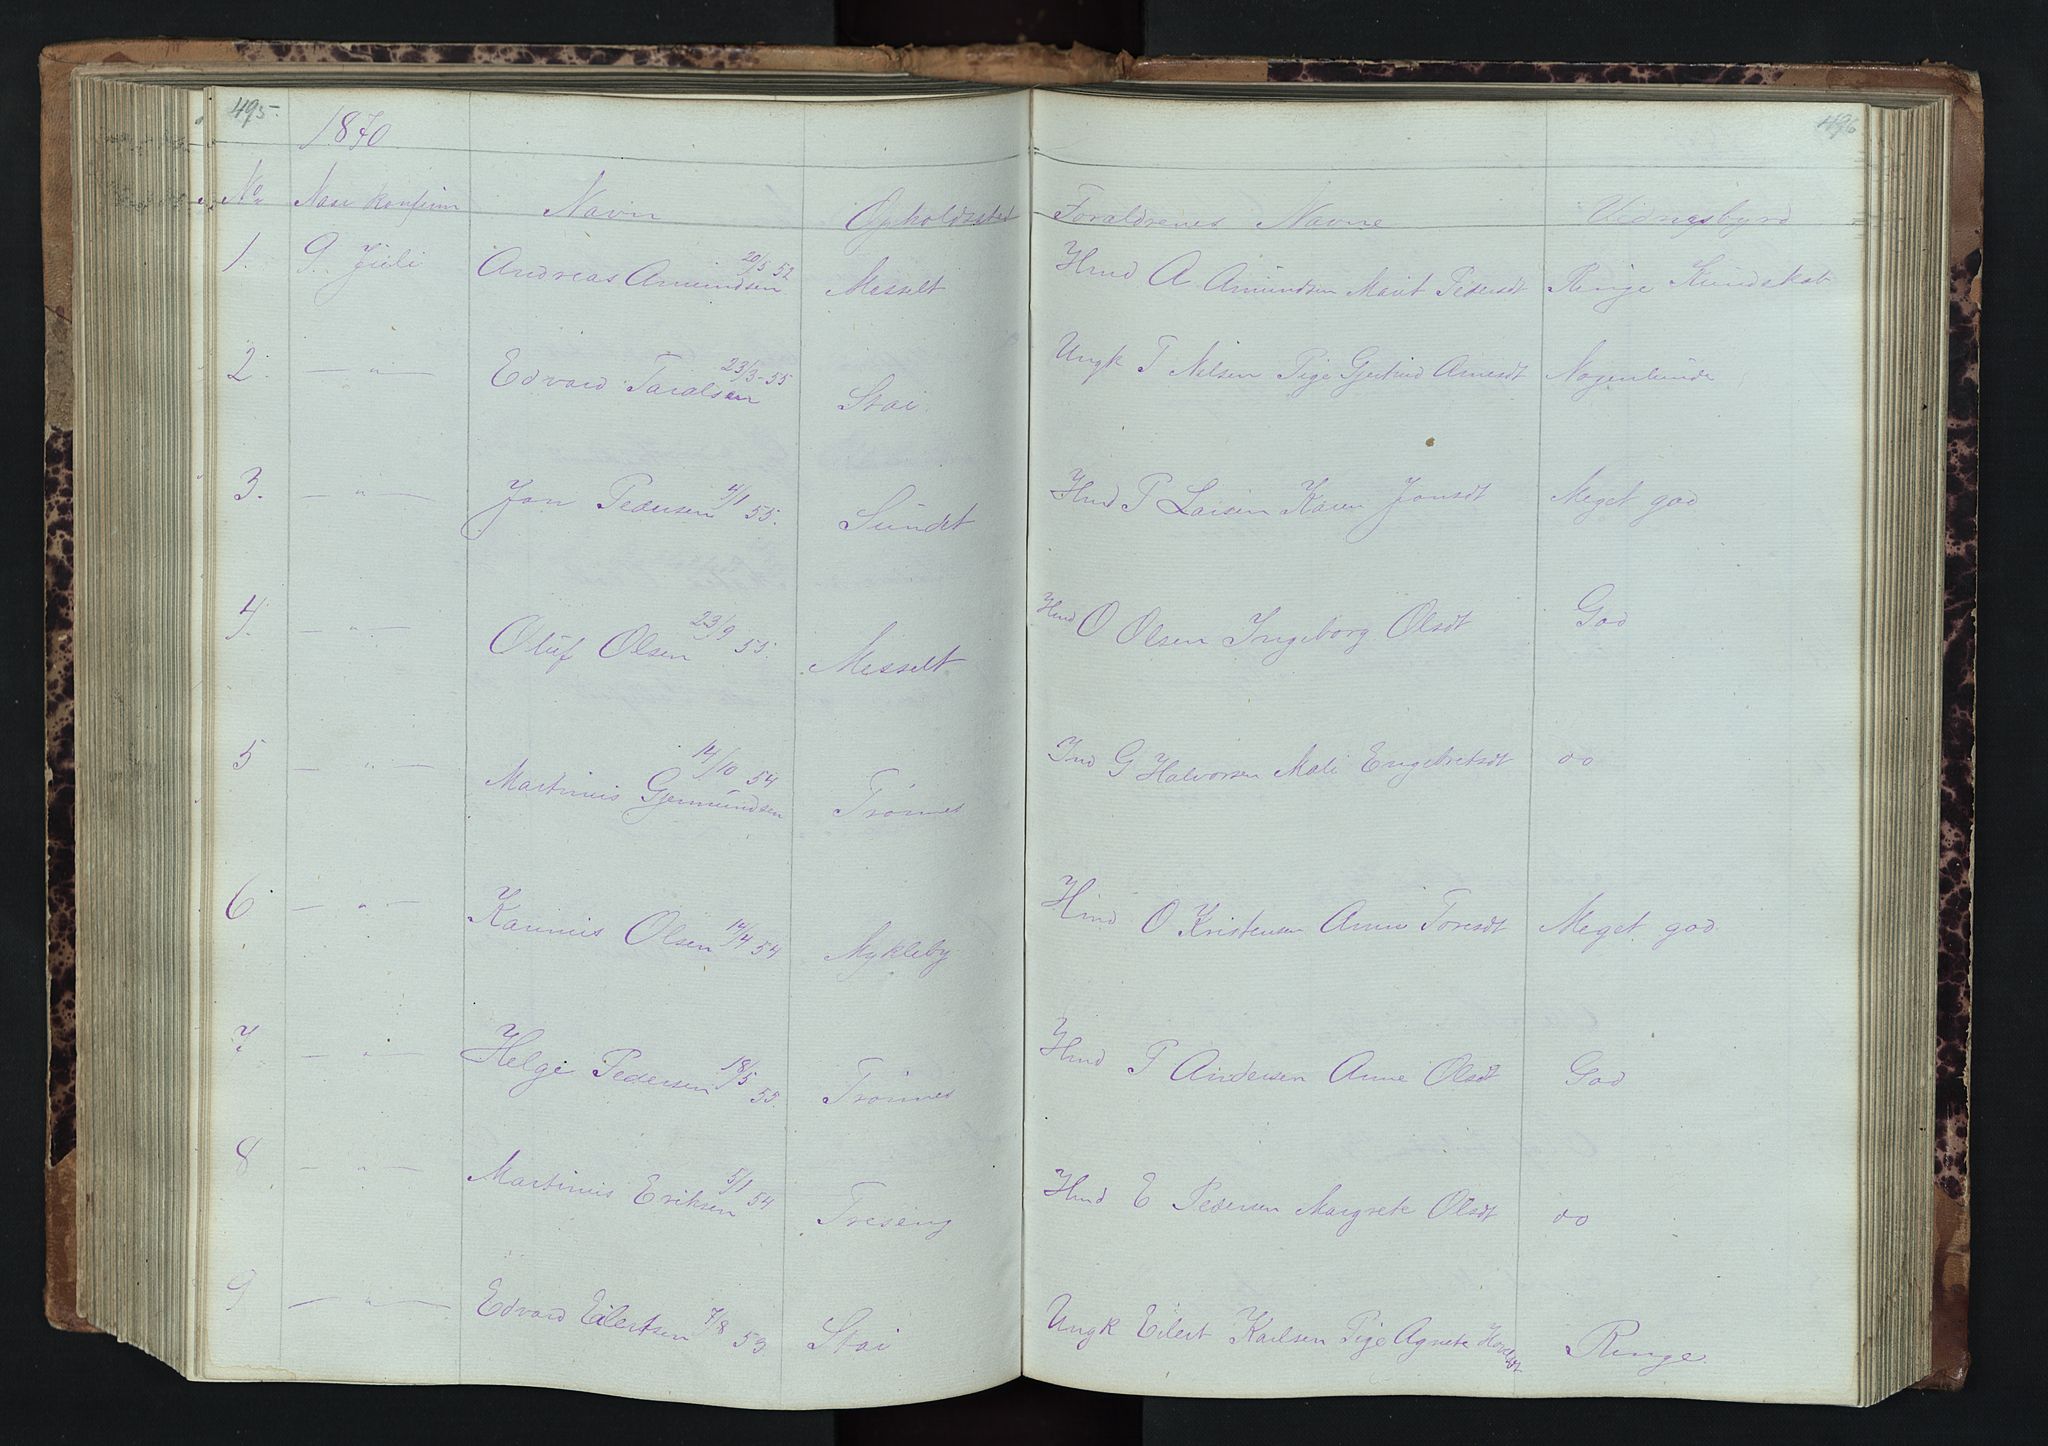 495.
496
1870
No Naar konfirm Navn Opholdssted Forældrenes Navne Vidnesbyrd
1. 9. Juli Andreas Amundsen 20/5 52 Messelt Hmd A Amundsen Marit Pedersdt Ringe Kundskab
2. — " — Edvard Taralsen 23/3-55 Stai Ungk T Nelsen Pige Gjertrud Arnesdt Nogenlunde
3. — " — Jon Pedersen 4/1 55. Sundet Hmd P Larsen Karen Jonsdt Meget god
4. — " — Oluf Olsen 23/9 55. Messelt Hmd O Olsen Ingeborg Olsdt God
5 — " — Martinus Gjermundsen 14/10 54 Trønnes Ind G Halvorsen Mali Engebretsdt do
6 — " — Karinus Olsen 14/4 54 Mykleby Hmd O Kristensen Anne Toresdt Meget god
7. — " — Helge Pedersen 18/5 55. Trønnes Hmd P Andersen Anne Olsdt God
8 — " — Martinus Eriksen 5/1 54 Treseng Hmd E Pedersen Margrete Olsdt do
9 — " — Edvard Eilertsen 7/8 53. Stai Ungk Eilert Karlsen Pige Agnete Ringe.